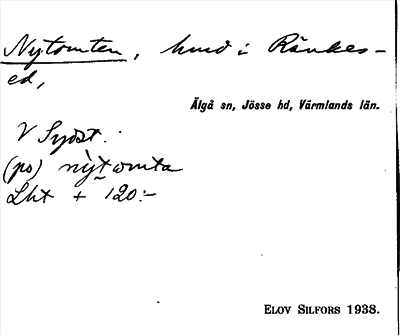 Nytomten, hmd i Rånkes-
ed,
Älgå sn, Jösse hd, Värmlands län.
V Sydst.
(po) nỳtωmta
Lht + 120:-
ELOV SILFORS 1938.